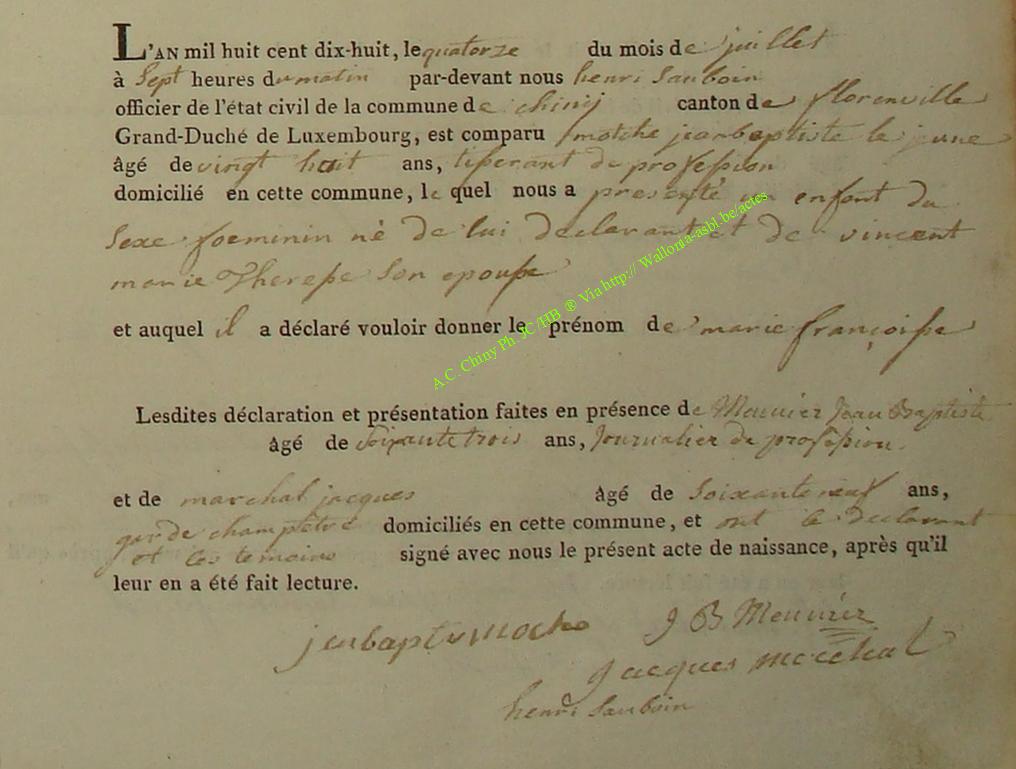 L'AN mil huit cent dix-huit, le quatorze du mois de juillet
à Sept heures du matin par-devant nous henri Sauboin
officier de l'état civil de la commune de chinij canton de florenville
Grand-Duché de Luxembourg, est comparu motche jean baptiste le jeune
âgé de vingt huit ans, tisserant de profession
domicilié en cette commune, le quel nous a presenté un enfant du
Sexe foeminin né de lui declarant et de vincent
marie Theresse Son epousse
et auquel il a déclaré vouloir donner le prénom de marie françoisse
Lesdites déclaration et présentation faites en présence de Meunier Jean Baptiste
âgé de Soixante trois ans, Journalier de profession.
et de marchal jacques âgé de Soixante neuf ans,
garde champetre domiciliés en cette commune, et ont le declarant
et les temoins signé avec nous le présent acte de naissance, après qu'il
leur en a été fait lecture.
J B Meunier
Jacques marchal
henri Sauboin
A.C. Chiny Ph. JC/HB ® Via http:// Wallonia-asbl.be/actes